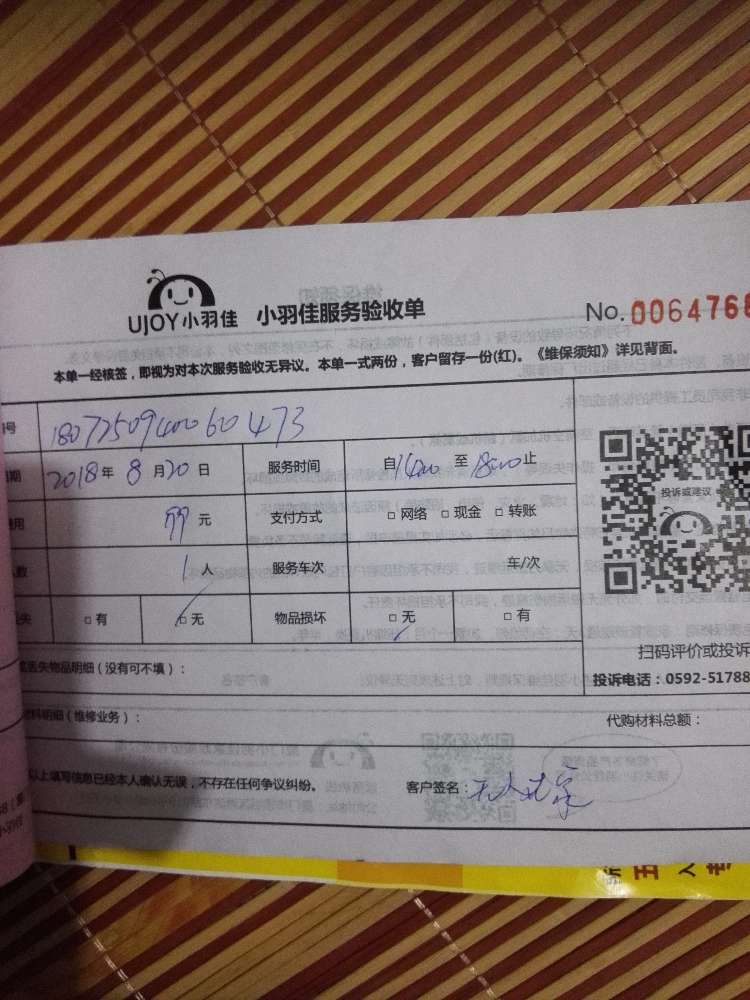 UJOY小羽佳 小羽佳服务验收单
No.0064766
本单一经核签，即视为对本次服务验收无异议。本单一式两份，客户留存一份(红)。《维保须知》详见背面。
号 1807250940060473
期 2018年 8月20日 服务时间 自1400至1800止
用 元 支付方式 □网络 □现金 □转账
数 1人 服务车次 车/次
失 □有 □无 物品损坏 □无 □有
投诉或建议
扫码评价或投诉
丢失物品明细（没有可不填）：
投诉电话：0592-51788
材料明细（维修业务）： 代购材料总额：
以上填写信息已经本人确认无误，不存在任何争议纠纷。 客户签名：无人在家
五人